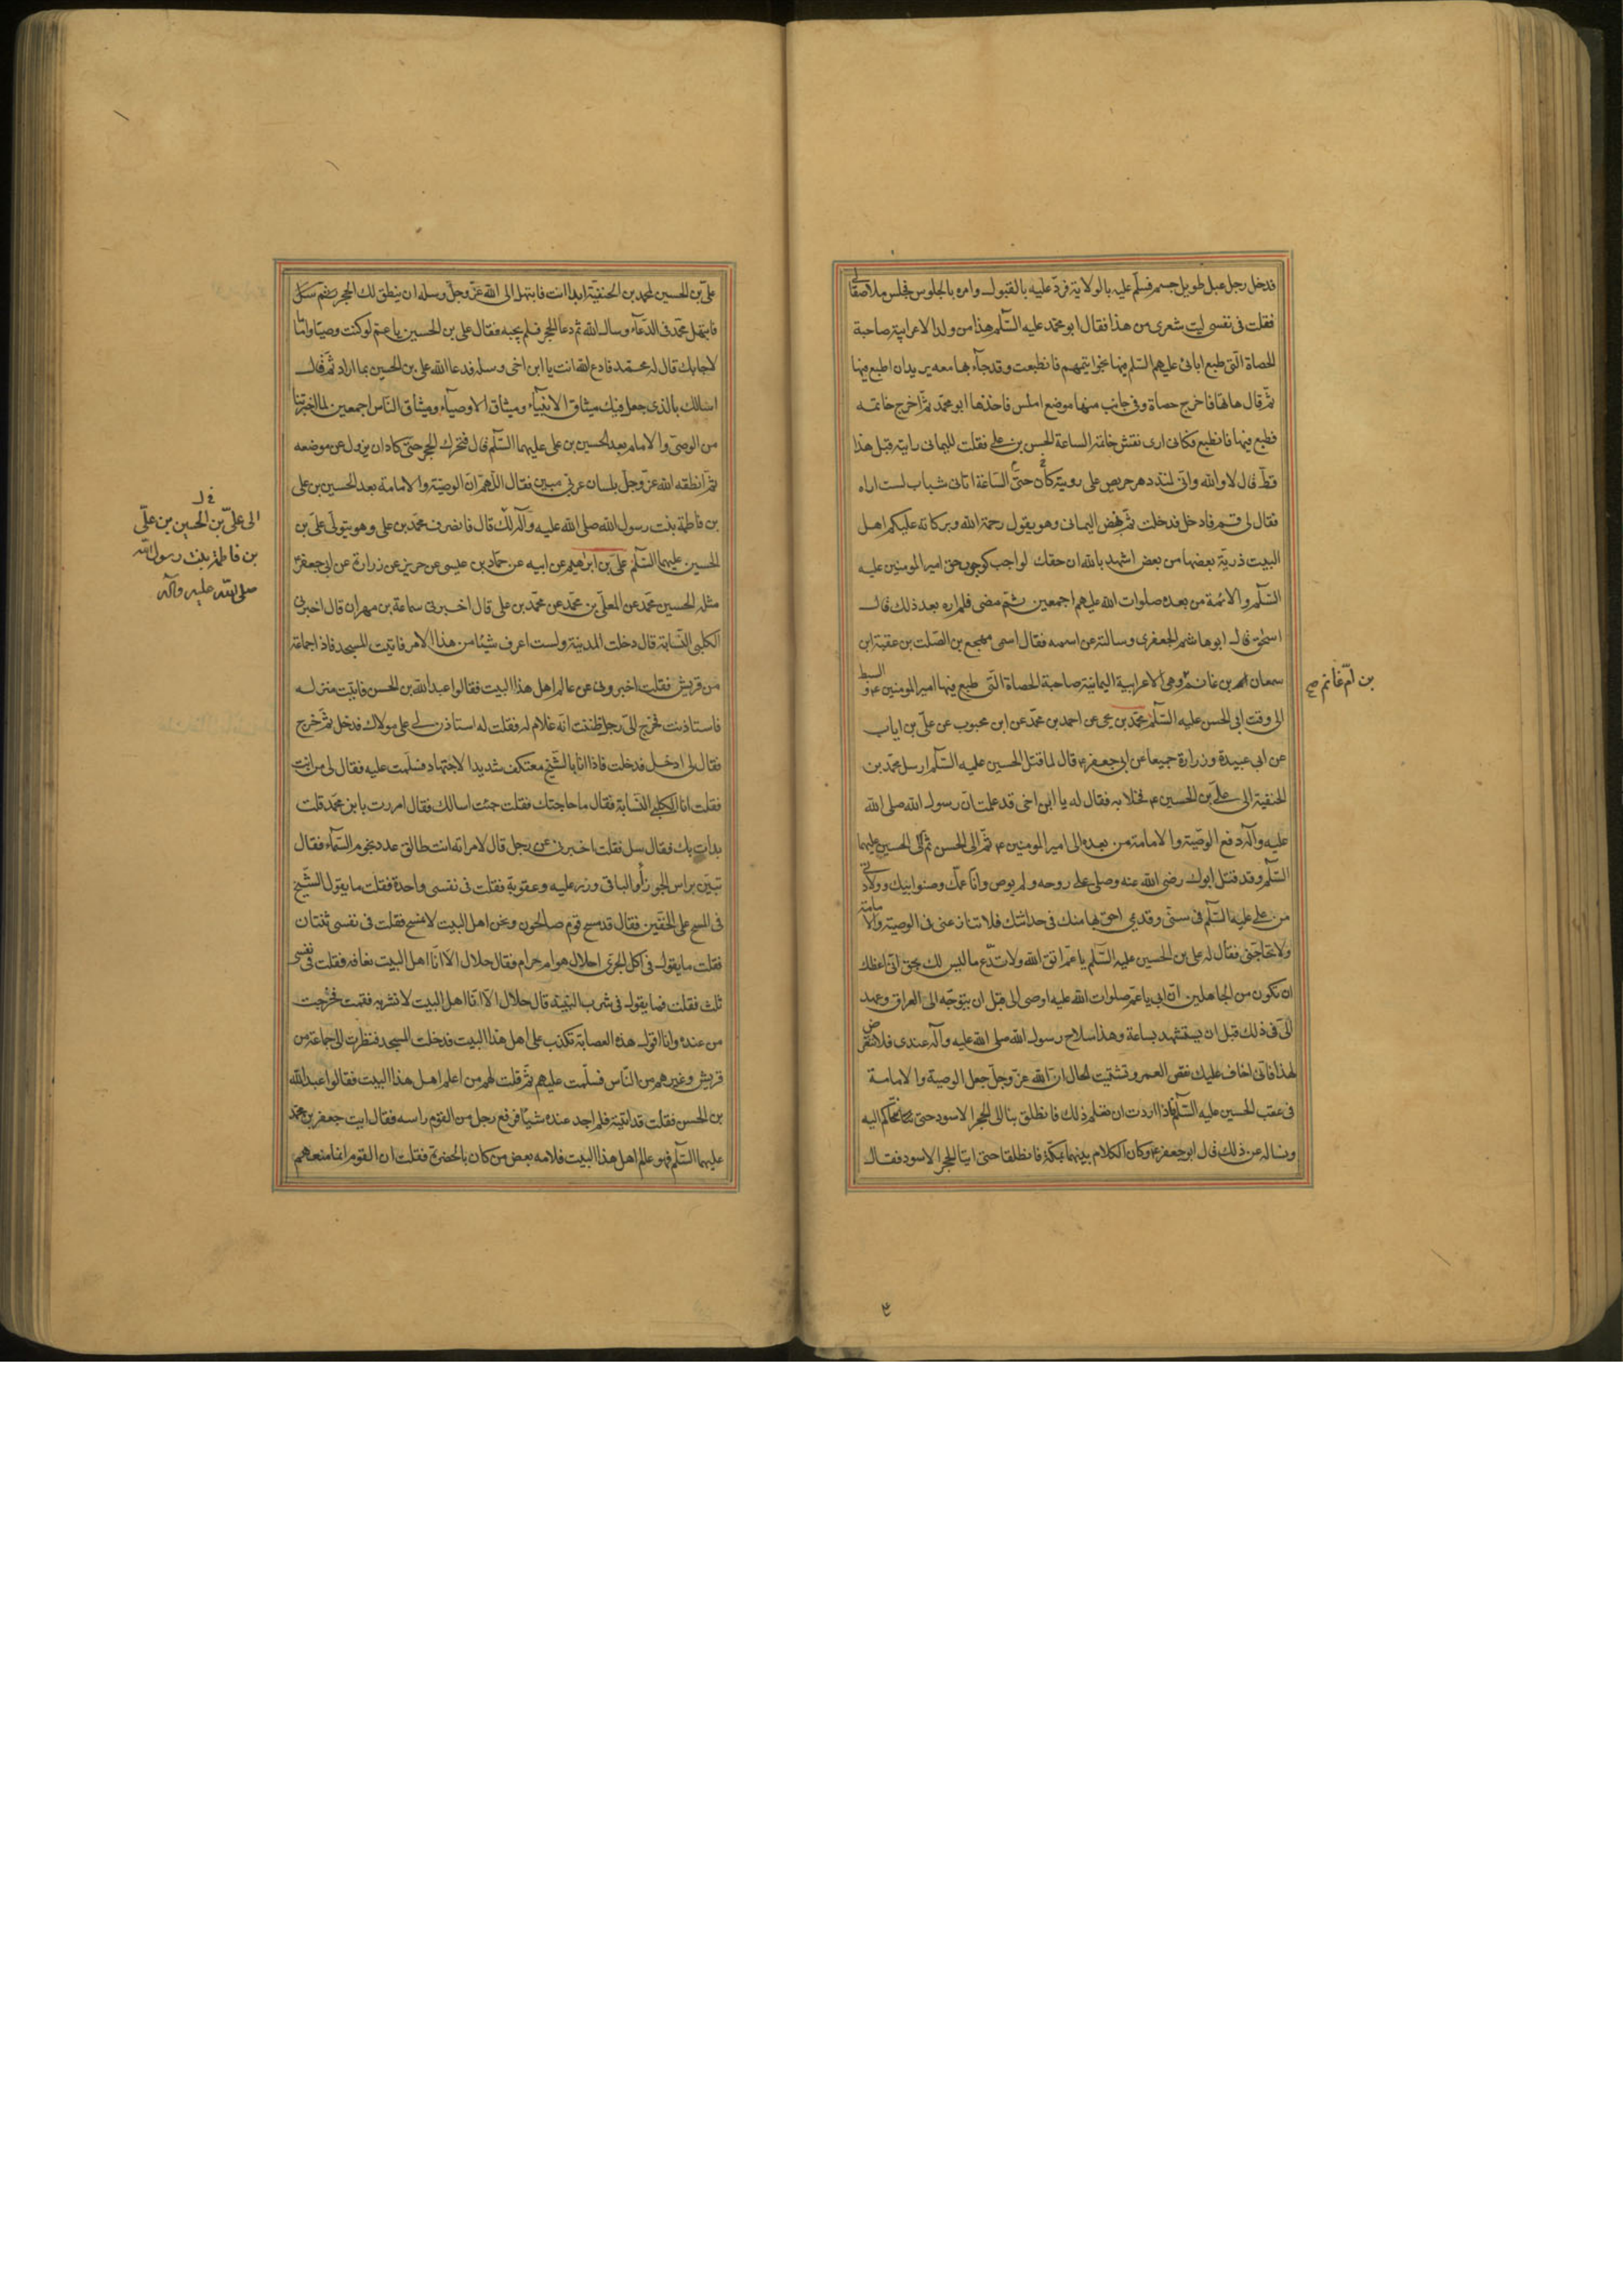 فدخل رجل عبل طويل جسم فسلّم عليه بالولاية فردّ عليه بالقبول وامره بالجلوس فجلس ملاصقا لى
فقلت فى نفسى ليت شعرى من هذا فقال ابو محمد عليه السّلم هذا من ولد الاعرابية صاحبة
الحصاة الّتى طبع ابائى عليهم السّلم فيها بخواتيمهم فانطبعت وقد جآء بها معه يريد ان اطبع فيها
ثمّ قال هاتها فاخرج حصاة وفى جانب منها موضع املس فاخذها ابو محمّد ثمّ اخرج خاتمه
فطبع فيها فانطبع فكانى ارى نقش خاتمه الساعة الحسن بن على فقلت لليمانى رايته قبل هذا
قطّ قال لا والله وانى لمنذ دهر حريص على رويته كان حتّى السّاعة اتانى شباب لست اراه
فقال لى قم فادخل فدخلت ثمّ نهض اليمانى وهو يقول رحمة الله وبركاته عليكم اهل
البيت ذرية بعضها من بعض اشهد بالله ان حقك لواجب كوجوب حق امير المومنين عليه
السّلم والائمة من بعده صلوات الله عليهم اجمعين ثم مضى فلم اره بعد ذلك قال
اسحق قال ابو هاشم الجعفرى وسالته عن اسمه فقال اسمى مهجع بن الصّلت بن عقبة ابن
سمعان بن غانم وهى الاعرابية اليمانية صاحبة الحصاة الّتى طبع فيها امير المومنين ع والسبط
بن امّ غانم صح
الى وقت ابى الحسن عليه السّلم محمّد بن يحيى عن احمد بن محمّد عن ابن محبوب عن علىّ بن اياب
عن ابى عبيدة وزرارة جميعا عن ابى جعفر ع قال لما قتل الحسين عليه السّلم ارسل محمّد بن
الحنفية الى علىّ بن الحسين ع فخلا به فقال له يا ابن اخى قد علمت انّ رسول الله صلى الله
عليه وآله دفع الوصيّة والامامة من بعده الى امير المومنين ع ثمّ الى الحسن ثمّ الى الحسين عليهما
السّلم وقد قتل ابوك رضى الله عنه وصلى على روحه ولم يوص وانا عمّك وصنو ابيك وولادتى
من على عليه السّلم فى سنّى وقديمى احق بها منك فى حداثتك فلا تنازعنى فى الوصية والامامة
ولا تحاجّنى فقال له على بن الحسين عليه السّلم يا عمّ اتق الله ولا تدّع ما ليس لك بحق انّى اعظك
ان تكون من الجاهلين انّ ابى يا عمّ صلوات الله عليه اوصى الى قبل ان يتوجّه الى العراق وعهد
الىّ فى ذلك قبل ان يستشهد بساعة وهذا سلاح رسول الله صلى الله عليه وآله عندى فلا تتعرّض
لهذا فانّى اخاف عليك نقص العمر وتشتيت الحال انّ الله عزّ وجلّ جعل الوصية والامامة
فى عقب الحسين عليه السّلم فاذا اردت ان تعلم ذلك فانطلق بنا الى الحجر الاسود حتى نتحاكم اليه
ونساله عن ذلك قال ابو جعفر ع وكان الكلام بينهما بمكّة فانطلقا حتى اتيا الحجر الاسود فقال
علىّ بن الحسين لمحمد بن الحنفيّة ابدا انت فابتهل الى الله عزّ وجلّ وسله ان ينطق لك الحجر ثم سل
فابتهل محمّد فى الدّعآء وسال الله ثمّ دعا الحجر فلم يجبه فقال على بن الحسين يا عم لو كنت وصيّا واماما
لاجابك قال له محمّد فادع الله انت يا ابن اخى وسله فدعا الله على بن الحسين بما اراد ثمّ قال
اسالك بالذى جعل فيك ميثاق الانبيآء وميثاق الاوصيآء وميثاق النّاس اجمعين لما اخبرتنا
من الوصىّ والامام بعد الحسين بن على عليهما السّلم قال فتحرك الحجر حتّى كاد ان يزول عن موضعه
ثمّ انطقه الله عزّ وجلّ بلسان عربى مبين فقال اللّهمّ انّ الوصيّة والامامة بعد الحسين بن على
قال
الى علىّ بن الحسين بن علىّ
بن فاطمة بنت رسول الله
صلى الله عليه وآله
بن فاطمة بنت رسول الله صلى الله عليه وآله لك قال فانصرف محمّد بن على وهو يتولّى علىّ بن
الحسين عليهما السّلم علىّ بن ابراهيم عن ابيه عن حمّاد بن عيسى عن حريز عن زرارة عن ابى جعفر ع
مثله الحسين بن محمّد عن المعلّى بن محمّد عن محمّد بن على قال اخبرنى سماعة بن مهران قال اخبرنى
الكلبى النّسابة قال دخلت المدينة ولست اعرف شيئا من هذا الامر فاتيت المسجد فاذا جماعة
من قريش فقلت اخبرونى عن عالم اهل هذا البيت فقالوا عبد الله بن الحسن فاتيت منزله
فاستاذنت فخرج الىّ رجل ظننت انّه غلام له فقلت له استاذن لى على مولاك فدخل ثمّ خرج
فقال لى ادخل فدخلت فاذا انا بالشّيخ معتكف شديد الاجتهاد فسلّمت عليه فقال لى من انت
فقلت انا الكلبى النّسابة فقال ما حاجتك فقلت جئت اسالك فقال امررت بابن محمّد قلت
بدات بك فقال سل فقلت اخبرنى عن رجل قال لامراته انت طالق عدد نجوم السّمآء فقال
تبين براس الجوزآء والباقى وزر عليه وعقوبة فقلت فى نفسى واحدة فقلت ما يقول الشّيخ
فى المسح على الخفّين فقال قد مسح قوم صالحون ونحن اهل البيت لا نمسح فقلت فى نفسى ثنتان
فقلت ما يقول فى اكل الجرّى احلال هو ام حرام فقال حلال الاّ انّا اهل البيت نعافه فقلت فى نفسى
ثلث فقلت فما يقول فى شرب النّبيذ قال حلال الاّ انّا اهل البيت لا نشربه فقمت فخرجت
من عنده وانا اقول هذه العصابة تكذب على اهل هذا البيت فدخلت المسجد فنظرت الى جماعة من
قريش وغيرهم من النّاس فسلّمت عليهم ثمّ قلت لهم من اعلم اهل هذا البيت فقالوا عبد الله
بن الحسن فقلت قد اتيته فلم اجد عنده شيئا فرفع رجل من القوم راسه فقال ايت جعفر بن محمّد
عليهما السّلم فهو عالم اهل هذا البيت فلامه بعض من كان بالحضرة فقلت ان القوم انما منعهم